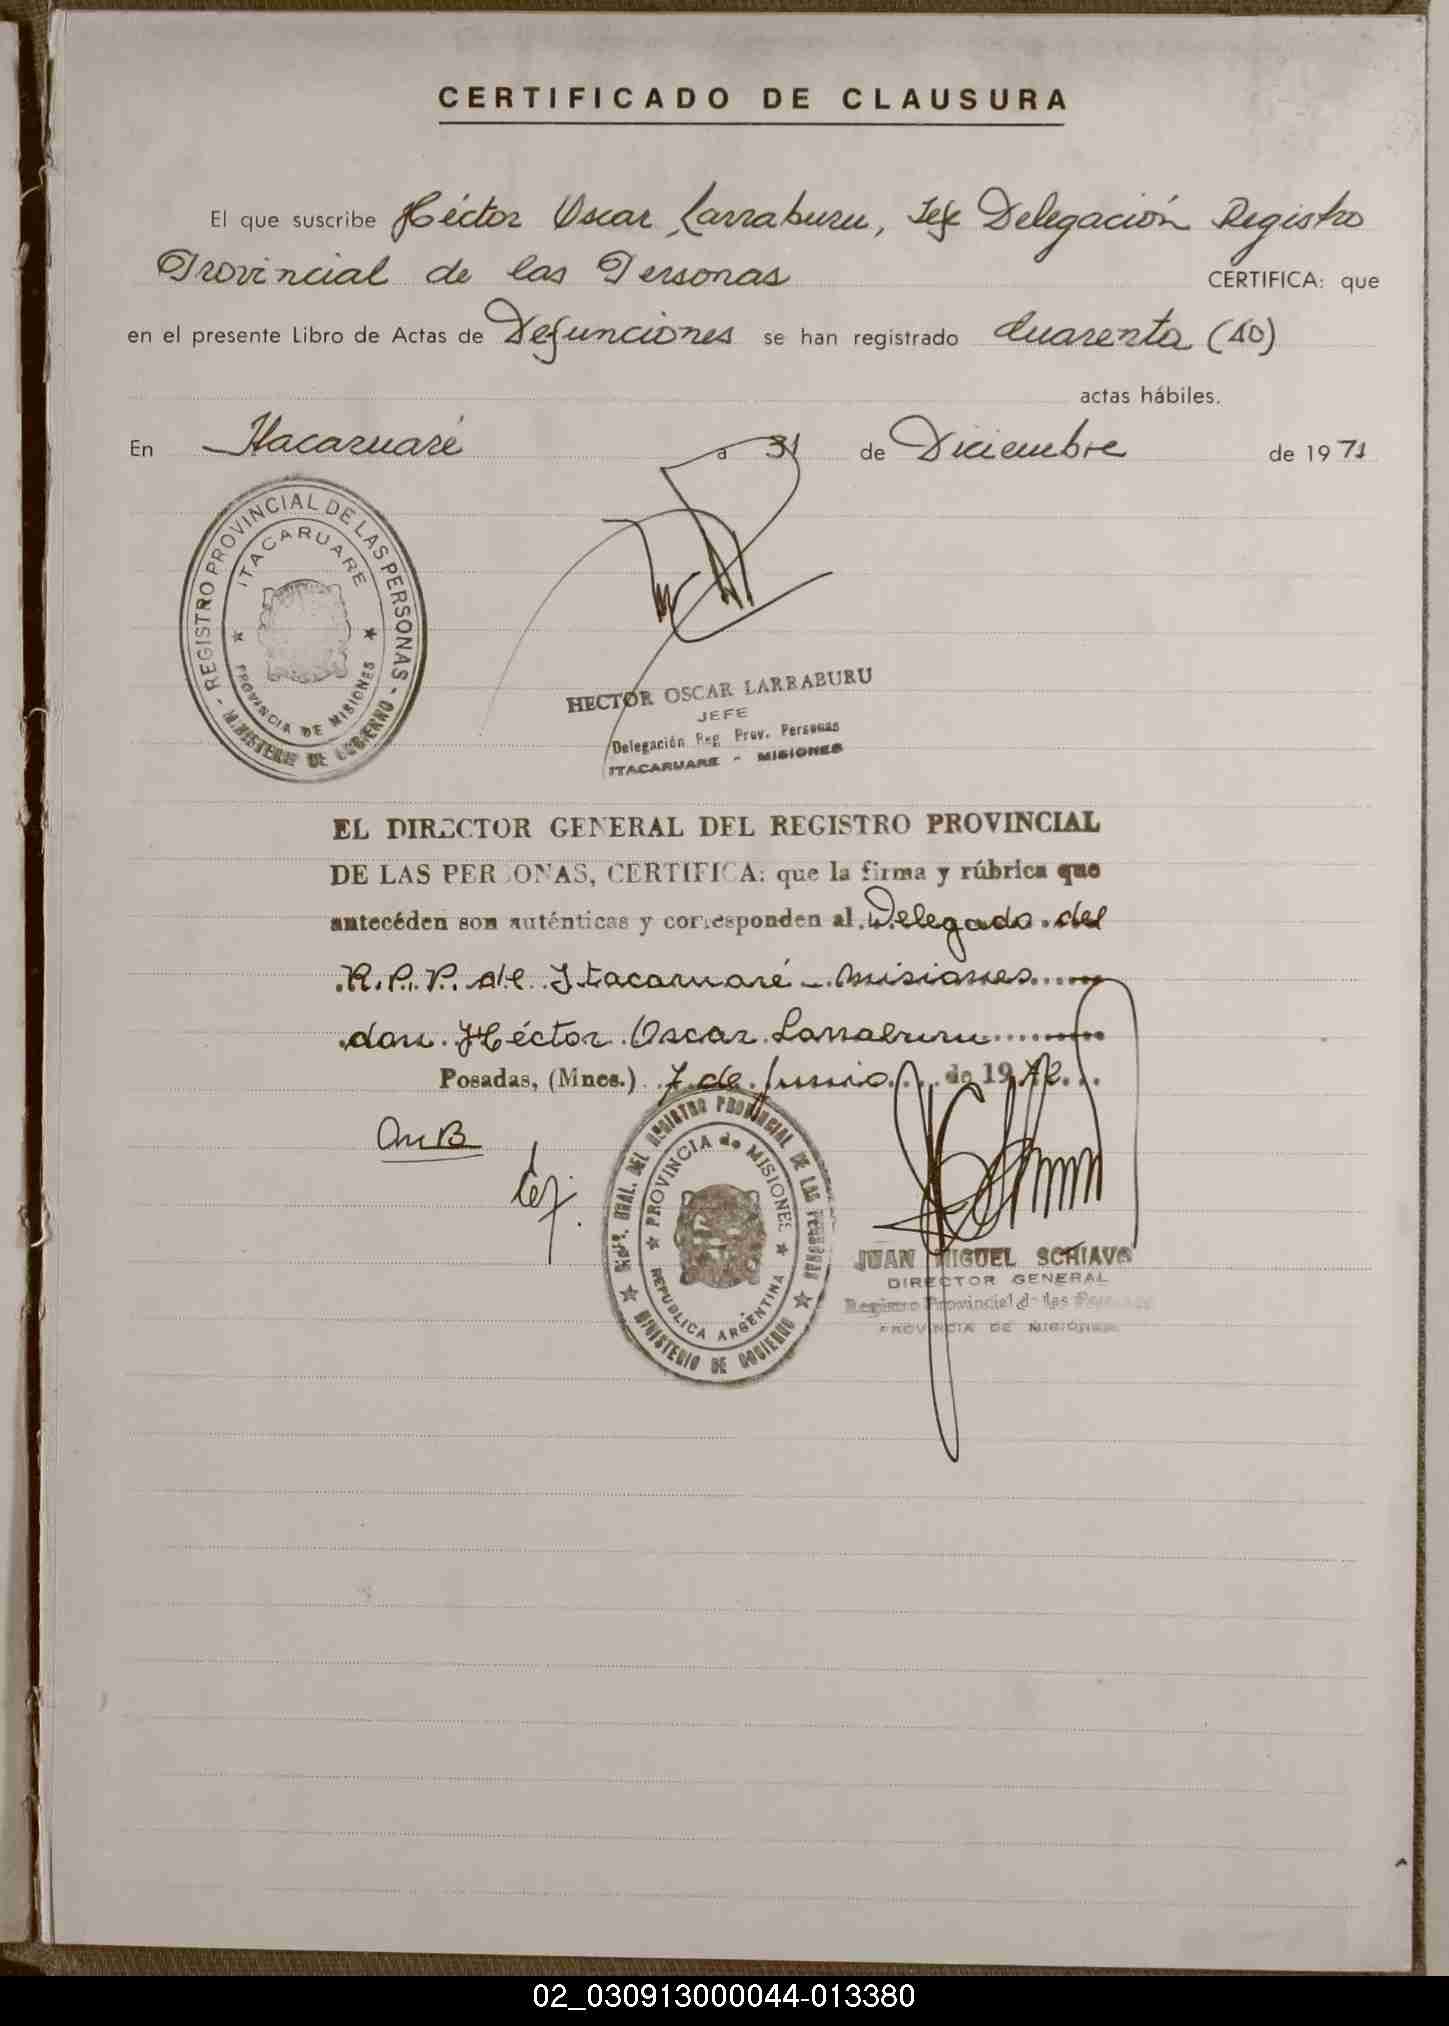 CERTIFICADO DE CLAUSURA
El que suscribe Héctor Oscar Larraburu, Jefe Delegación Registro
Provincial de las Personas CERTIFICA: que
en el presente Libro de Actas de Defunciones se han registrado Cuarenta (40)
actas hábiles.
En Itacaruaré a 31 de Diciembre de 1971
REGISTRO PROVINCIAL DE LAS PERSONAS - MINISTERIO DE GOBIERNO -
ITACARUARE
PROVINCIA DE MISIONES
HECTOR OSCAR LARRABURU
JEFE
Delegación Reg. Prov. Personas
ITACARUARE - MISIONES
EL DIRECTOR GENERAL DEL REGISTRO PROVINCIAL
DE LAS PERSONAS, CERTIFICA: que la firma y rúbrica que
antecéden son auténticas y corresponden al Delegado del
R.P.P. de Itacaruaré - Misiones
don Héctor Oscar Larraburu
Posadas, (Mnes.) 7 de Junio de 1972
DIR. GRAL. DEL REGISTRO PROVINCIAL DE LAS PERSONAS
MINISTERIO DE GOBIERNO
PROVINCIA de MISIONES
REPUBLICA ARGENTINA
JUAN MIGUEL SCHIAVO
DIRECTOR GENERAL
Registro Provincial de las Personas
PROVINCIA DE MISIONES
02_030913000044-013380